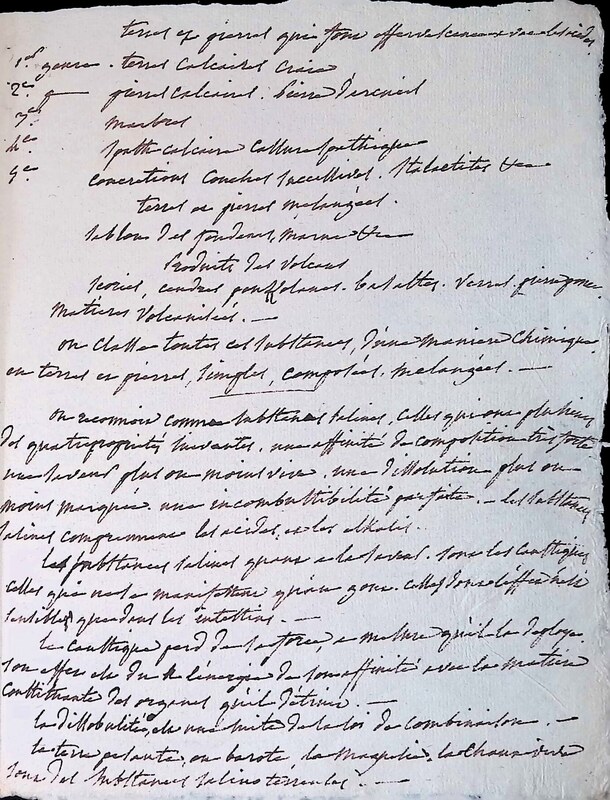 terres et pierres qui font effervescence avec les acides
1er genre . terres calcaires craie
2e g pierres calcaires . pierre d'arcueil
3e marbres
4e spath calcaire calcaire spathique
5e concretions couches successives . stalactites &c
terres et pierres melangées .
sables des fondeurs, marne &c
Produits des volcans
scories, cendres pouzzolanes . basaltes . verres . pierre ponce .
matieres volcanisées . —
on classe toutes ces substances, d'une maniere chimique
en terres et pierres, simples, composées, melangées . —
on reconnoit comme substances salines, celles qui ont plusieurs
des quatre proprietés suivantes . une affinité de composition très forte
une saveur plus ou moins vive . une dissolution plus ou
moins marquée . une incombustibilité parfaite . — les substances
salines comprennent les acides, et les alkalis .
les substances salines quant a la saveur . sont les caustiques
celles qui ne se manifestent qu'au gout . celles dont l'effet n'est
sensible que dans les intestins . —
le caustique perd de sa force, a mesure qu'il la deploye .
son effet est du à l'énergie de son affinité avec la matiere
constituante des organes qu'il détruit . —
la dissolubilité, est une suite de la loi de combinaison . —
la terre pesante, ou barote, la magnesie, la chaux vive
sont des substances salino terreuses . —